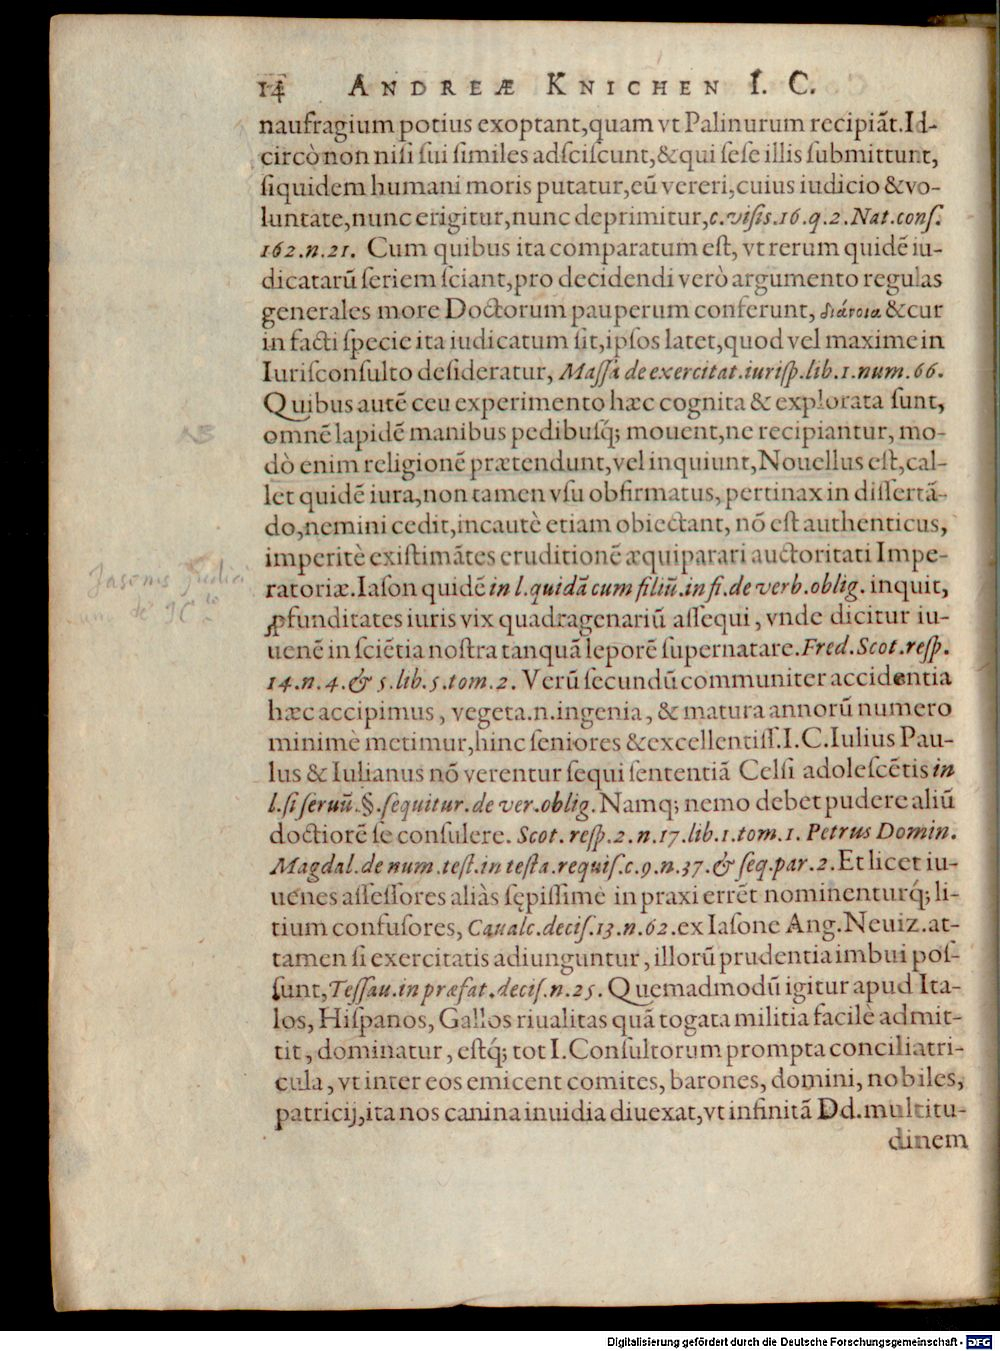 14 ANDREÆ KNICHEN I. C.
naufragium potius exoptant,quam vt Palinurum recipiãt.Id-
circò non niſi ſui ſimiles adſciſcunt,&qui ſeſe illis ſubmittunt,
ſiquidem humani moris putatur,eũ vereri,cuius iudicio &vo-
luntate,nunc erigitur,nunc deprimitur,c.viſis.16.q.2.Nat.conſ.
162.n.21. Cum quibus ita comparatum eſt, vt rerum quidẽ iu-
dicatarũ ſeriem ſciant,pro decidendi verò argumento regulas
generales more Doctorum pauperum conferunt, διάνοια &cur
in facti ſpecie ita iudicatum ſit,ipſos latet,quod vel maxime in
Iurisconſulto deſideratur, Maſſa de exercitat.iuriſp.lib.1.num.66.
Quibus autẽ ceu experimento hæc cognita & explorata ſunt,
NB
omnẽ lapidẽ manibus pedibuſq́; mouent,ne recipiantur, mo-
dò enim religionẽ prætendunt,vel inquiunt,Nouellus eſt,cal-
let quidẽ iura,non tamen vſu obfirmatus, pertinax in diſſertã-
do,nemini cedit,incautè etiam obiectant, nõ eſt authenticus,
imperitè exiſtimãtes eruditionẽ æquiparari auctoritati Impe-
Jasonis Judici
ratoriæ.Iaſon quidẽ in l.quidã cum filiũ.in fi.de verb.oblig. inquit,
um de JC to
ꝓfunditates iuris vix quadragenariũ aſſequi, vnde dicitur iu-
uenẽ in ſciẽtia noſtra tanquã leporẽ ſupernatare.Fred.Scot.reſp.
14.n.4.& 5.lib.5.tom.2. Verũ ſecundũ communiter accidentia
hæc accipimus, vegeta.n.ingenia, & matura annorũ numero
minimè metimur,hinc ſeniores &excellentiſſ.I.C.Iulius Pau-
lus & Iulianus nõ verentur ſequi ſententiã Celſi adoleſcẽtis in
l.ſi ſeruũ.§.ſequitur.de ver.oblig. Namq; nemo debet pudere aliũ
doctiorẽ ſe conſulere. Scot. reſp.2.n.17.lib.1.tom.1. Petrus Domin.
Magdal.de num.teſt.in teſta.requiſ.c.9.n.37.& ſeq.par.2.Et licet iu-
uenes aſſeſſores aliàs ſępiſſimè in praxi errẽt nominenturq́; li-
tium confuſores, Caualc.deciſ.13.n.62.ex Iaſone Ang.Neuiz.at-
tamen ſi exercitatis adiunguntur, illorũ prudentia imbui poſ-
ſunt,Teſſau.in præfat.deciſ.n.25. Quemadmodũ igitur apud Ita-
los, Hiſpanos, Gallos riualitas quã togata militia facilè admit-
tit, dominatur, eſtq́; tot I.Conſultorum prompta conciliatri-
cula, vt inter eos emicent comites, barones, domini, nobiles,
patricij,ita nos canina inuidia diuexat,vt infinitã Dd.multitu-
dinem
Digitalisierung gefördert durch die Deutsche Forschungsgemeinschaft - DFG